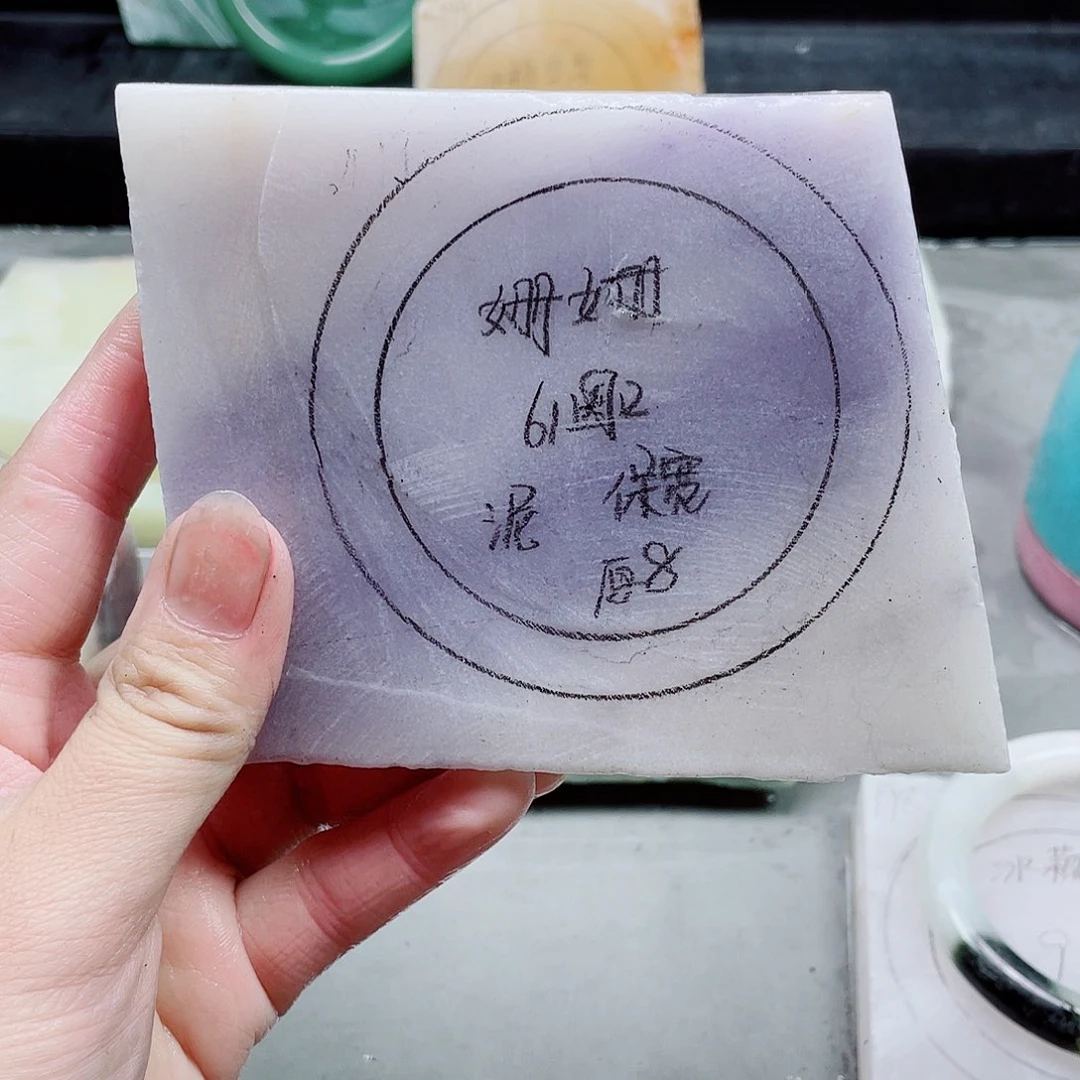 姗姗
61圈口
泥 保宽
厚8
冰
9